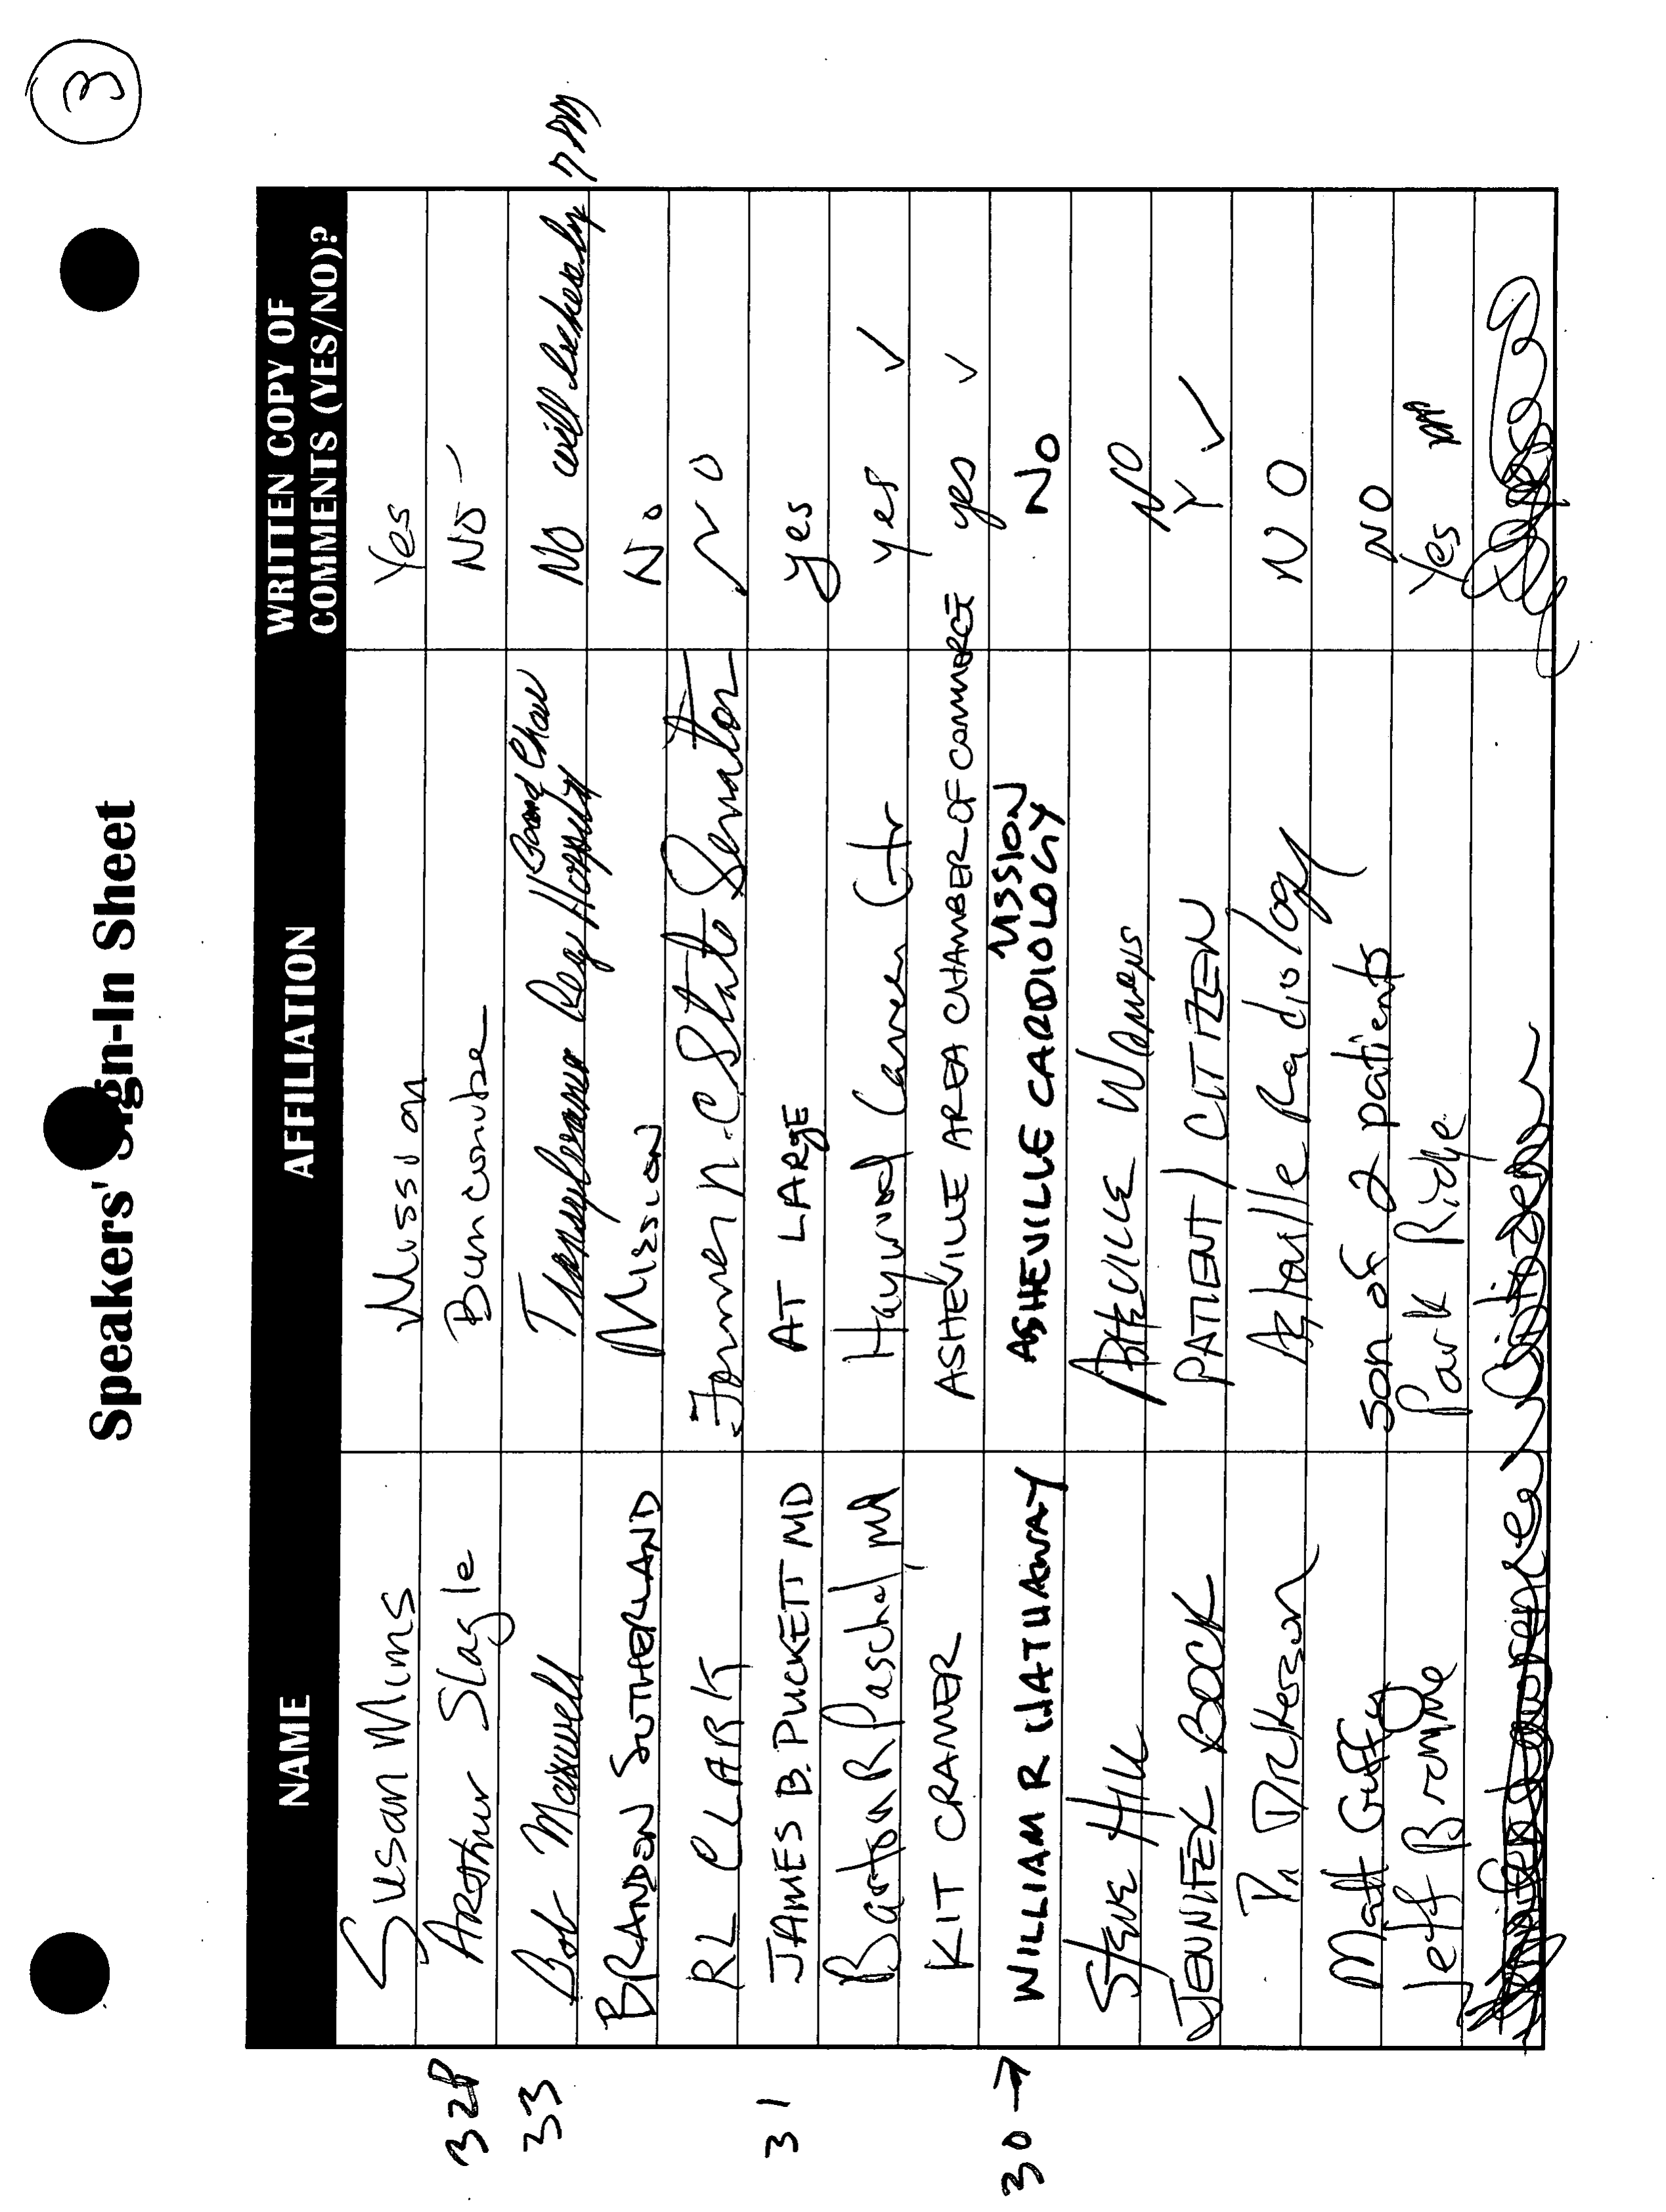 3
Speakers' Sign-In Sheet
NAME AFFILIATION WRITTEN COPY OF COMMENTS (YES/NO)?
Susan Mims Mission Yes
32 Arthur Slagle Buncombe No -
33 Bob Maxwell Transylvania Reg Hospital Board Chair No will
BRANDON SUTHERLAND Mission No
RL CLARK Former N.C State Senator NO
31 JAMES B. PUCKETT MD AT LARGE yes
Barton R Paschal, MD Haywood Cancer Ctr yes ✓
KIT CRAMER ASHEVILLE AREA CHAMBER OF COMMERCE yes ✓
30 → WILLIAM R HATHAWAY ASHEVILLE CARDIOLOGY MISSION No
Steve Hill Womens NO
JENNIFER BOCK PATIENT / CITIZEN Y ✓
Dr Dickerson Radiology NO
Matt Guffy son of 2 patients NO
Jeff Bromme Park Ridge Yes
Citizen